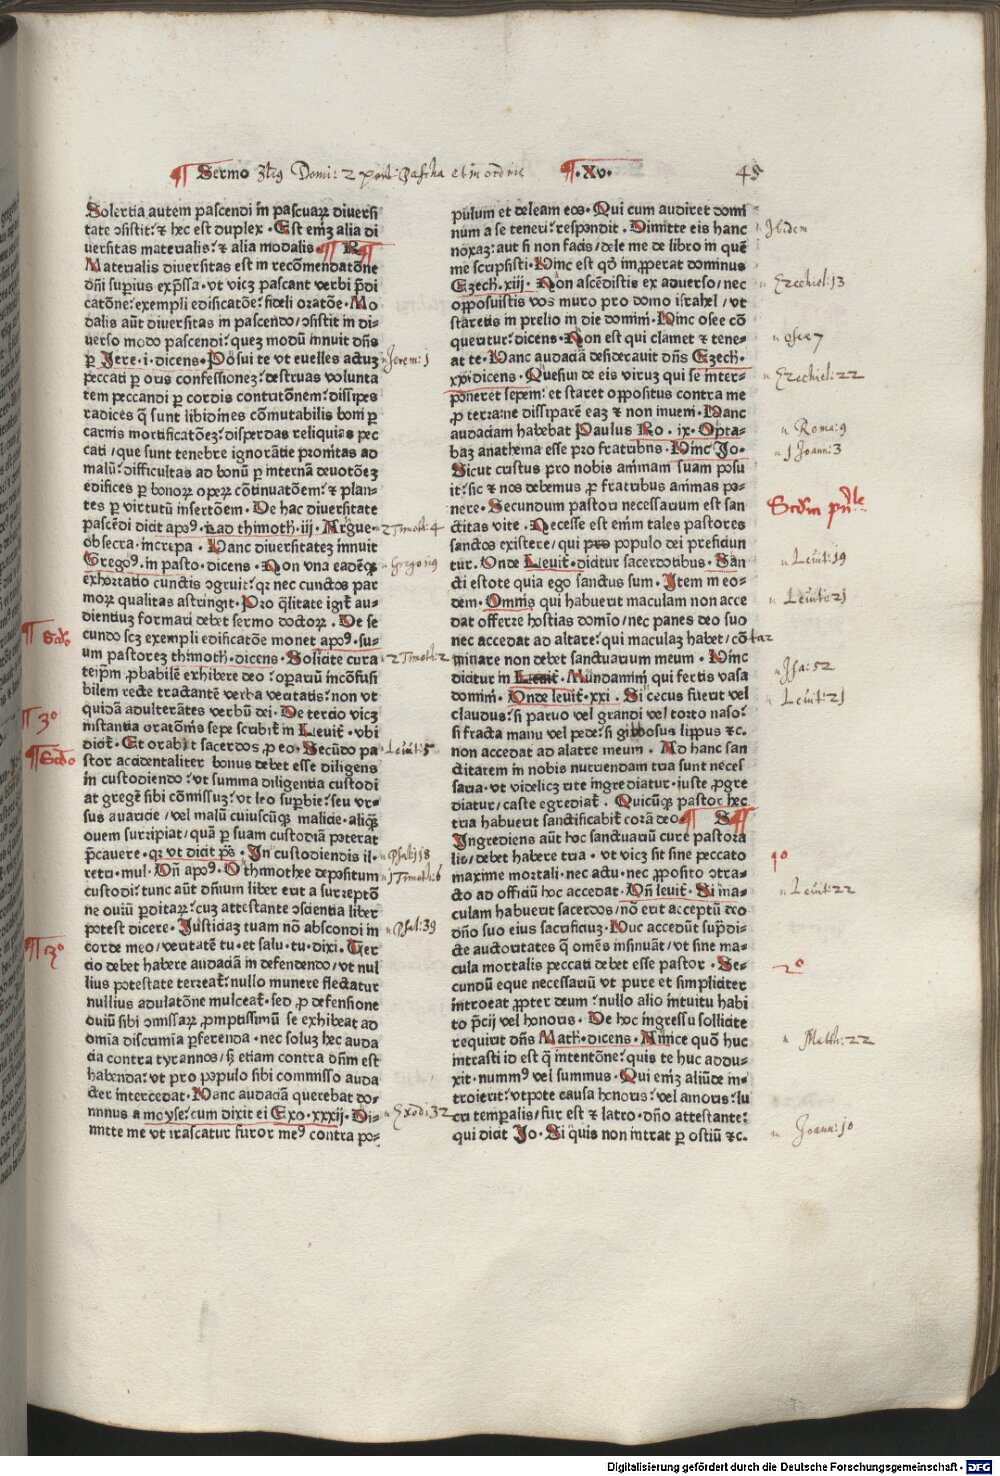 Sermo 3tius Domi: 2 post Pascha et in ordine
·Xv·
45
Solertia autem pascendi in pascuaꝝ diuersi
tate ↄsistit: ⁊ hec est duplex · Est em̄ alia di
uersitas materialis: ⁊ alia modalis · R
Materialis diuersitas est in recōmendatōne
dn̄i supius exp̄ssa · vt vicꝫ pascant verbi p̄di
catōne: exempli edificatōe: fideli oratōe · Mo
dalis aūt diuersitas in pascendo / ↄsistit in di-
uerso modo pascendi: quez modū innuit dn̄s
ꝑ Jere · i · dicens · Posui te vt euelles actuz
peccati ꝑ oris confessionez: destruas volunta
tem peccandi ꝑ cordis contritōnem: dissipes
radices q̄ sunt libidines cōmutabilis boni ꝑ
carnis mortificatōez: disperdas reliquias pec
cati / que sunt tenebre ignorātie pronitas ad
malū: difficultas ad bonū ꝑ internā deuotōez
edifices ꝑ bonoꝝ operꝝ cōtinuatōem: ⁊ plan-
tes ꝑ virtutū insertōem · De hac diuersitate
pascēdi dicit apoꝰ · i · ad thimoth · iij · Argue
obsecra · increpa · Hanc diuersitatez innuit
Gregoꝰ · in pasto · dicens · Non vna eadēqꝫ
exhortatio cunctis ↄgruit: qꝛ nec cunctos par
moꝝ qualitas astringit · Pro q̄litate igit̄ au-
dientiuꝫ formari debet sermo doctoꝝ · De se
cundo scꝫ exempli edificatōe monet apoꝰ · su-
um pastorez thimoth · dicens · Solicite cura
teip̄m ꝓbabilē exhibere deo: oparıū incōfusi
bilem recte tractantē verba veritatis: non vt
quidā adulterātes verbū dei · De tercio vicꝫ
instantia oratōnis sepe scribit̄ in Leuit̄ · vbi
dicit̄ · Et orabit sacerdos ꝓ eo · Secūdo pa
stor accidentaliter bonus debet esse diligens
in custodiendo: vt summa diligentia custodi
at gregē sibi cōmissuꝫ: vt leo supbie: seu vr-
sus auaricie / vel malū cuiuscūqꝫ malicie · aliqꝫ
ouem surripiat / quā ꝑ suam custodiā poterat
p̄cauere · qꝛ vt dicit p̄s · In custodiendis il-
retri · mul · Dn̄ apoꝰ · O thimothee depositum
custodi: tunc aūt dn̄ium liber erit a surreptō
ne ouiū ꝑditaꝝ: cuꝫ attestante ↄscientia liber
potest dicere · Justiciaꝫ tuam nō abscondi in
corde meo / veritatē tu · et salu · tu · dixi · Ter
cio debet habere audaciā in defendendo / vt nul
lius potestate terreat̄: nullo munere flectatur
nullius adulatōne mulceat̄ · sed ꝓ defensione
ouiū sibi ↄmissaꝝ ꝓmptissimū se exhibeat ad
omia discrimia ꝑferenda · nec soluꝫ hec auda
cia contra tyrannos / sꝫ etiam contra dn̄m est
habenda: vt pro populo sibi commisso auda
cter intercedat · Hanc audaciā querebat do-
minus a moyse: cum dixit ei Exo · xxxij · Di-
mitte me vt irascatur furor meꝰ contra po-
pulum et deleam eos · Qui cum audiret domi
num a se teneri: respondit · Dimitte eis hanc
noxaꝫ: aut si non facis / dele me de libro in quē
me scripsisti · Hinc est qd̓ imꝓperat dominus
Ezech̄ · xiij · Non ascēdistis ex aduerso / nec
opposuistis vos muro pro domo israhel / vt
staretis in prelio in die domini · Hinc osee cō
queritur: dicens · Non est qui clamet ⁊ tene-
at te · Hanc audaciā desiderauit dn̄s Ezech̄ ·
xxij · dicens · Quesiui de eis viruꝫ qui se inter-
poneret sepem: et staret oppositus contra me
ꝓ terra: ne dissiparē eaꝫ ⁊ non inueni · Hanc
audaciam habebat Paulus Ro · ix · Opta-
baꝫ anathema esse pro fratribus · Hinc Jo ·
Sicut cristus pro nobis animam suam posu
it: sic ⁊ nos debemus ꝓ fratribus animas po-
nere · Secundum pastori necessarium est san
ctitas vite · Necesse est enim tales pastores
sanctos existere / qui populo dei preficiun
tur · Unde Leuit̄ · dicitur sacerdotibus · San
cti estote quia ego sanctus sum · Item in eo-
dem · Omnis qui habuerit maculam non acce
dat offerre hostias domio / nec panes deo suo
nec accedat ad altare: qui maculaꝫ habet / cōtar
minare non debet sanctuarium meum · Hinc
dicitur in · Mundamini qui fertis vasa
domini · Unde leuit̄ · xxi · Si cecus fuerit vel
claudus: si paruo vel grandi vel torto naso:
si fracta manu vel pede: si gibbosus lippus ⁊c ·
non accedat ad alatre meum · Ad hanc san
ctitatem in nobis nutriendam tria sunt neces
saria · vt videlicꝫ rite ingrediatur · iuste ꝓgre
diatur / caste egrediat̄ · Quicūqꝫ pastor hec
tria habuerit sanctificabit̄ corā deo · S
Ingrediens aūt hoc sanctuariū cure pastora
lis / debet habere tria · vt vicꝫ sit sine peccato
maxime mortali · nec actu · nec ꝓposito ↄtra-
cto ad officiū hoc accedat · Dn̄ leuit̄ · Si ma-
culam habuerit sacerdos / nō erit acceptū deo
dn̄o suo eius sacrificiuꝫ · Huc accedūt sup̄di-
cte auctoritates q̄ omēs insinuāt / vt sine ma-
cula mortalis peccati debet esse pastor · Se-
cundū eque necessariū vt pure et simpliciter
introeat ꝓpter deum: nullo alio intuitu habi
to p̄cij vel honoris · De hoc ingressu sollicite
requirit dn̄s Math̄ · dicens · Amice quō huc
intrasti id est q̄ intentōne: quis te huc addu-
xit · nummꝰ vel summus · Qui emꝫ aliūde in-
troierit: vtpote causa honoris: vel amoris: lu
cri tempalis / fur est ⁊ latro · dn̄o attestante:
qui dicit Jo · Si quis non intrat ꝑ ostiū ⁊c ·
Jerem: 1
2 Timoth: 4
Gregorig
2 Timoth: 2
Leuit: 5
Psal: 118
1 Timoth: 6
Psal: 39
Exodi 32
Scdo
3º
Scdo
3º
Ibidem
Ezechiel: 13
Osee 7
Ezechiel: 22
Roma: 9
1 Joann: 3
Scdm prnle
Leuit: 19
Leuit: 21
Isa: 52
Leuit: 21
1º
Leuit: 22
2º
Matth: 22
Joann: 10
Digitalisierung gefördert durch die Deutsche Forschungsgemeinschaft - DFG